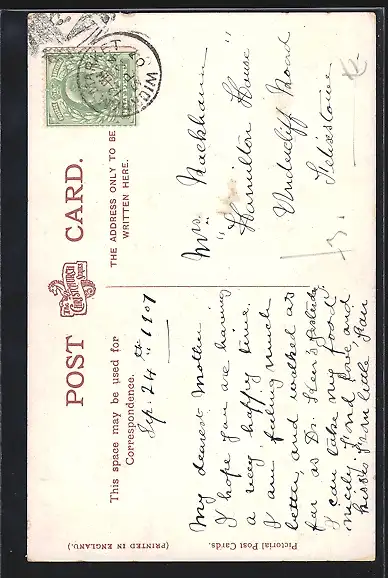 POST CARD.
The
CHRISTCHURCH
This space may be used for
Correspondence.
THE ADDRESS ONLY TO BE
WRITTEN HERE.
Sep. 24th 1907
My dearest Mother
I hope you are having
a very happy time
I am feeling much
better, and walked as
far as Dr.
I can take my food
nicely. Fond love, and
kisses from little
Mrs. Packham
"Hamilton House"
Undercliff Road
Felixstowe
Pictorial Post Cards.
(PRINTED IN ENGLAND.)